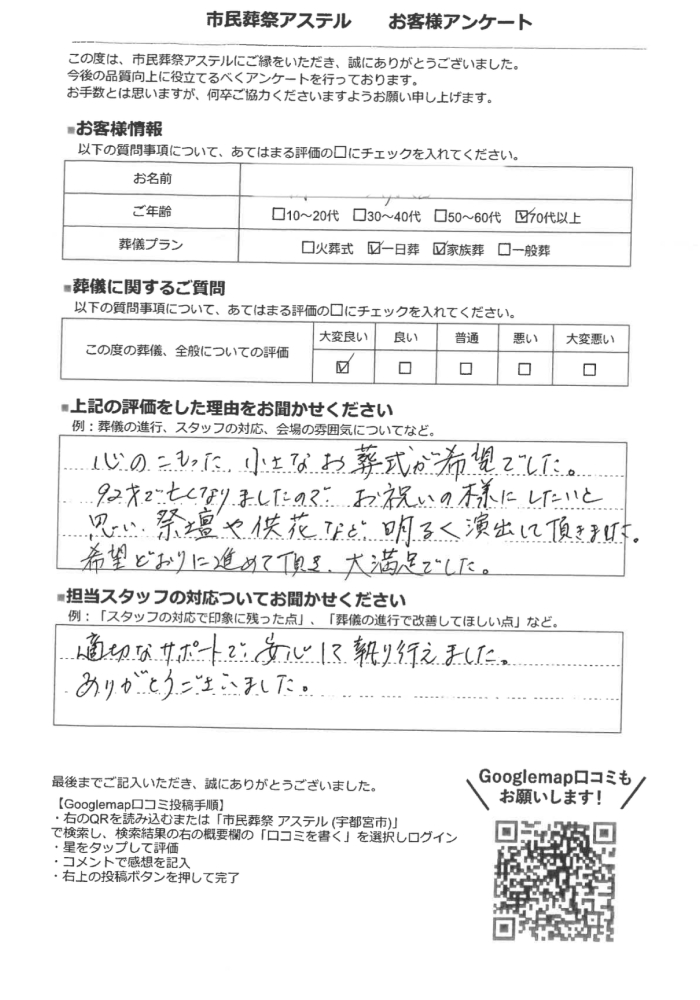 市民葬祭アステル お客様アンケート
この度は、市民葬祭アステルにご縁をいただき、誠にありがとうございました。
今後の品質向上に役立てるべくアンケートを行っております。
お手数とは思いますが、何卒ご協力くださいますようお願い申し上げます。
■お客様情報
以下の質問事項について、あてはまる評価の□にチェックを入れてください。
お名前
ご年齢 □10～20代 □30～40代 □50～60代 ☑70代以上
葬儀プラン □火葬式 ☑一日葬 ☑家族葬 □一般葬
■葬儀に関するご質問
以下の質問事項について、あてはまる評価の□にチェックを入れてください。
大変良い 良い 普通 悪い 大変悪い
この度の葬儀、全般についての評価 ☑ □ □ □ □
■上記の評価をした理由をお聞かせください
例：葬儀の進行、スタッフの対応、会場の雰囲気についてなど。
心のこもった、小さなお葬式が希望でした。
92才で亡くなりましたので、お祝いの様にしたいと
思い、祭壇や供花など、明るく演出して頂きました。
希望どおりに進めて頂き、大満足でした。
■担当スタッフの対応ついてお聞かせください
例：「スタッフの対応で印象に残った点」、「葬儀の進行で改善してほしい点」など。
適切なサポートで、安心して執り行えました。
ありがとうございました。
最後までご記入いただき、誠にありがとうございました。
Googlemap口コミも
お願いします！
【Googlemap口コミ投稿手順】
・右のQRを読み込むまたは「市民葬祭 アステル (宇都宮市)」
で検索し、検索結果の右の概要欄の「口コミを書く」を選択しログイン
・星をタップして評価
・コメントで感想を記入
・右上の投稿ボタンを押して完了